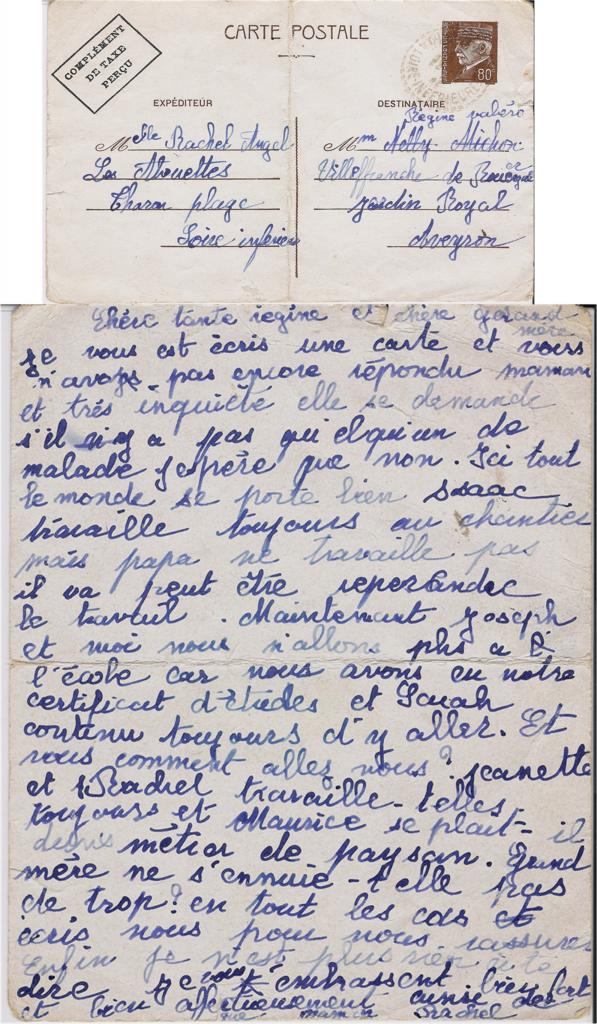 COMPLÉMENT
DE TAXE
PERÇU
CARTE POSTALE
80c
EXPÉDITEUR
Mlle Rachel Angel
Les Alouettes
Tharon plage
Loire inférieure
DESTINATAIRE
Regine valéro
Mm Nelly Michon
Villeffranche de Rouergue
Jardin Royal
Aveyron
Chère tante regine et chère grand
mère
Je vous est ècris une carte et vous
n'avons pas encore répondu maman
et trés inquiété elle se demande
s'il n'y a pas quielquun de
malade j'espère que non. Ici tout
le monde se porte bien ssaac
travaille toujours au chantier
mais papa ne travaille pas
il va peut être
le travail. Maintenant Joseph
et moi nous n'allons plus a l
l'école car nous avons eu notre
certificat d'études et Sarah
continu toujours d'y aller. Et
vous comment allez vous? Jeanette
et Rachel travaille-telles
toujours et Maurice se plait-il
métier de paysan. Grand
mère ne s'ennuie-t elle pas
de trop? en tout les cas
ècris nous pour nous rassurer
Enfin je n'est plus rien a te
dire je vous embrassent bien fort
et bien affectieusement ainsi
que maman Rachel